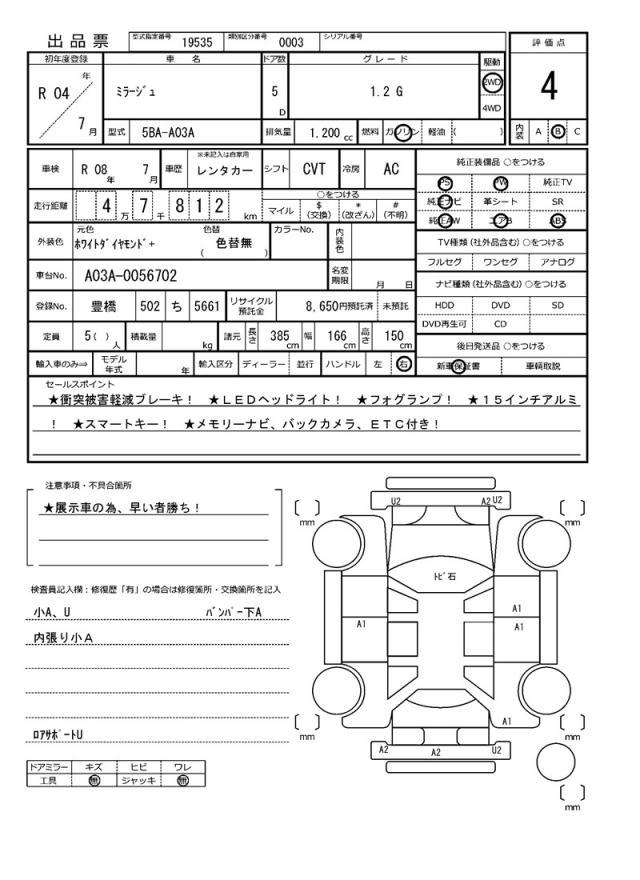 出品票 型式指定番号 19535 類別区分番号 0003 シリアル番号
評価点
4
内装 A B C
初年度登録 車名 ドア数 グレード 駆動
R 04 年 7 月 ﾐﾗｰｼﾞｭ 5 D 1.2 G 2WD 4WD
型式 5BA-A03A 排気量 1.200 cc 燃料 ガソリン 軽油 ( )
車検 R 08 年 7 月 車歴 ※未記入は自家用 レンタカー シフト CVT 冷房 AC
走行距離 4 万 7 千 8 1 2 km
○をつける
マイル $ (交換) * (改ざん) # (不明)
外装色 元色 ﾎﾜｲﾄﾀﾞｲﾔﾓﾝﾄﾞ+ 色替 ( 色替無 ) カラーNo. 内装色
車台No. A03A-0056702 名変期限 月 日
登録No. 豊橋 502 ち 5661 リサイクル預託金 8,650円預託済 未預託
定員 5( ) 人 積載量 kg 諸元 長さ 385 cm 幅 166 cm 高さ 150 cm
輸入車のみ⇒ モデル年式 年 輸入区分 ディーラー 並行 ハンドル 左 右
純正装備品 ○をつける
PS PW 純正TV
純正ナビ 革シート SR
純正AW エアB ABS
TV種類 (社外品含む) ○をつける
フルセグ ワンセグ アナログ
ナビ種類 (社外品含む) ○をつける
HDD DVD SD
DVD再生可 CD
後日発送品 ○をつける
新車保証書 車輌取説
セールスポイント
★衝突被害軽減ブレーキ！ ★ＬＥＤヘッドライト！ ★フォグランプ！ ★１５インチアルミ
！ ★スマートキー！ ★メモリーナビ、バックカメラ、ＥＴＣ付き！
注意事項・不具合箇所
★展示車の為、早い者勝ち！
検査員記入欄：修復歴「有」の場合は修復箇所・交換箇所を記入
小A、U ﾊﾞﾝﾊﾟｰ下A
内張り小A
ﾛｱｻﾎﾟｰﾄU
ドアミラー キズ ヒビ ワレ
工具 無 ジャッキ 無
U2 A2 U2
mm mm
ﾄﾋﾞ石
A1
A1 A1
A1
mm mm
A2 A2 U2
mm